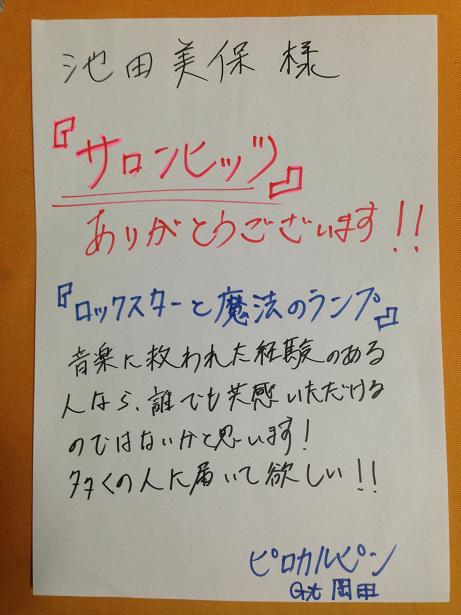 池田美保 様
『サロンヒッツ』
ありがとうございます!!
『ロックスターと魔法のランプ』
音楽に救われた経験のある
人なら、誰でも共感いただける
のではないかと思います!
多くの人に届いて欲しい!!
ピロカルピン
Gt. 岡田